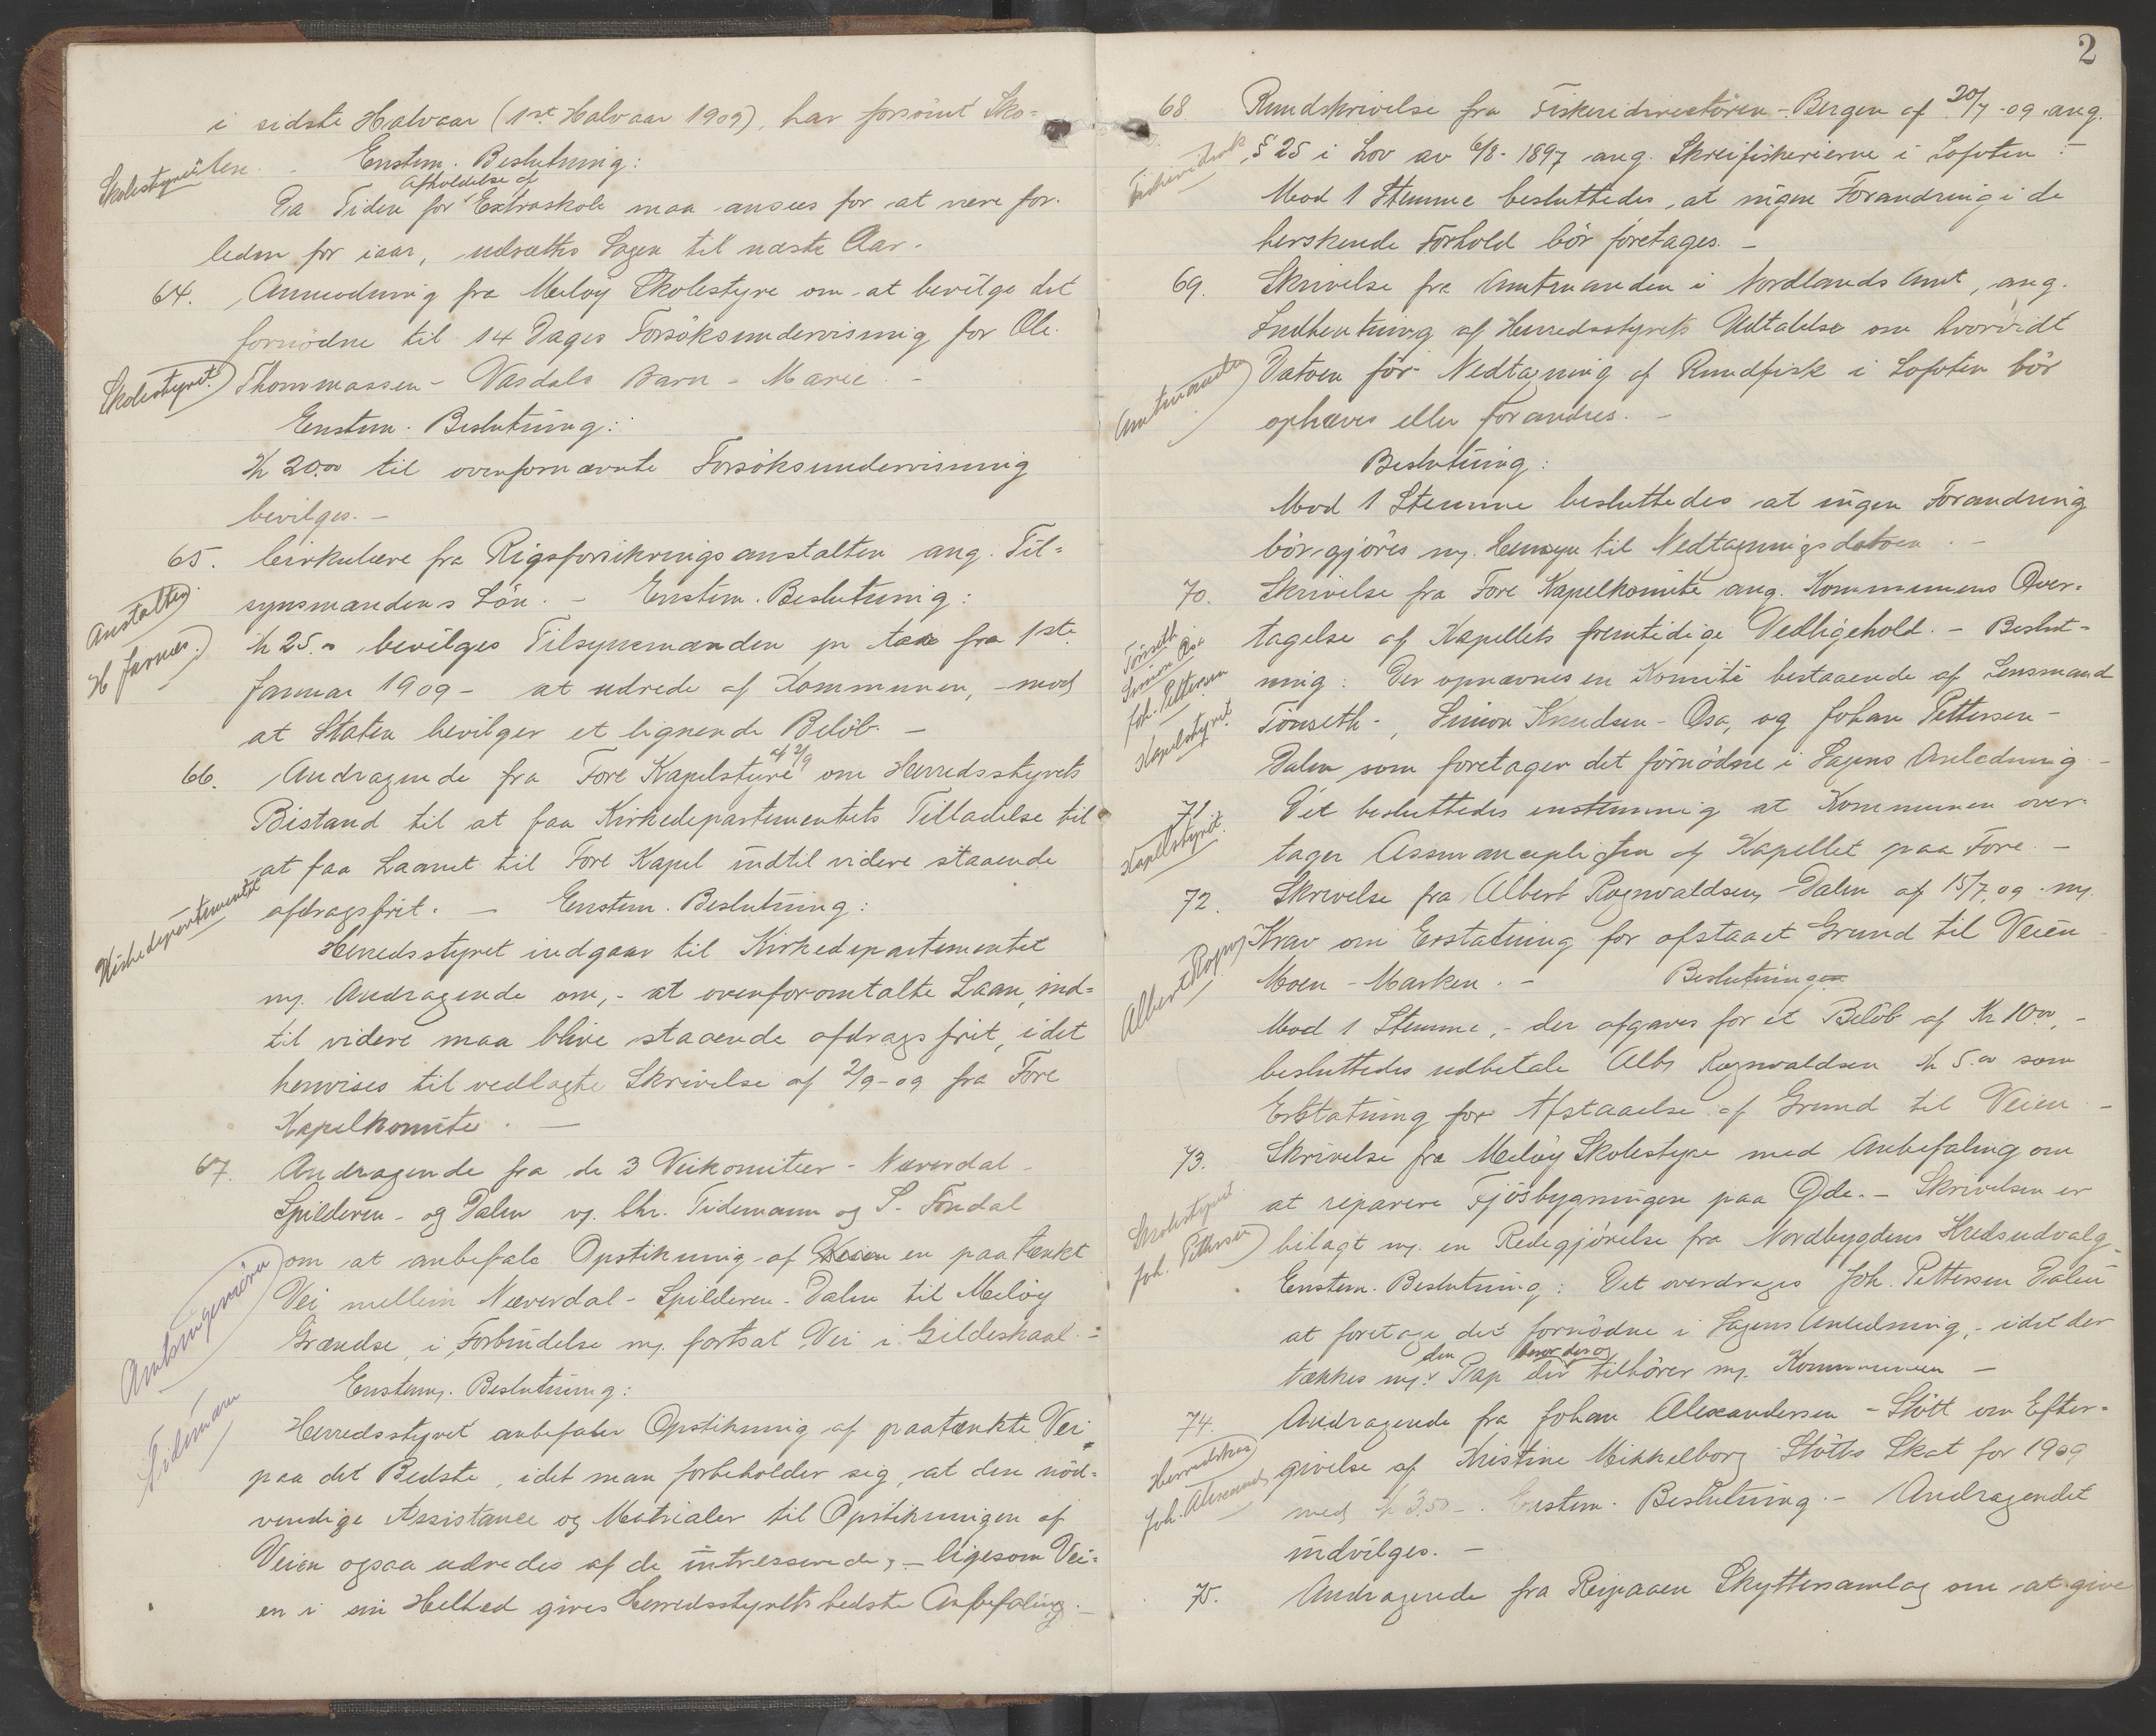 i sidste Halvaar (1ste Halvaar 1909), har forsömt Sko=
Skolestyret
len. Enstem. Beslutning:
Afholdelse af
Da Tiden for Extraskole maa ansees for at være for-
leden for iaar, udsættes Sagen til næste Aar.
64. Anmodning fra Melöy Skolestyre om at bevilge det
fornödne til 14 Dages Forsöksundervisning for Ole
Skolestyret
Thommassen - Vasdals Barn - Marie. -
Enstem. Beslutning:
Kr 20.00 til ovenfornævnte Forsöksundervisning
bevilges. -
65. Cirkulære fra Rigsforsikringsanstalten ang. Til=
Anstalten
synsmandens Lön. - Enstem. Beslutning:
H Jarnæs.
Kr 25.- bevilges Tilsynsmanden pr Aar fra 1ste
Januar 1909 - at udrede af Kommunen, - mod
at Staten bevilger et lignende Belöb. -
af 2/9
66. Andragende fra Fore Kapelstyre om Herredsstyrets
Bistand til at faa Kirkedepartementets Tilladelse til
at faa Laanet til Fore Kapel indtil videre staaende
Kirkedepartementet
afdragsfrit. - Enstem. Beslutning:
Herredsstyret indgaar til Kirkedepartementet
m. Andragende om, - at ovenforomtalte Laan, ind=
til videre maa blive staaende afdragsfrit, idet
henvises til vedlagte Skrivelse af 2/9-09 fra Fore
Kapelkomite. -
67. Andragende fra de 3 Veikomiteer - Næverdal -
Spilderen - og Dalen v. Chr. Tidemann og S. Fondal
om at anbefale Opstikning af Veien en paatænkt
Amtsingeniören
Vei mellem Næverdal - Spilderen - Dalen til Melöy
Grændse, i Forbindelse m. fortsat Vei i Gildeskaal. -
Tidemann
Enstem. Beslutning:
Herredsstyret anbefaler Opstikning af paatænkte Vei
paa det Bedste, idet man forbeholder sig, at den nöd=
vendige Assistance og Matrialer til Opstikningen af
Veien ogsaa udredes af de intresserede, - ligesom Vei=
en i sin Helhed gives Herredsstyrets bedste Anbefaling. -
2
68 Rundskrivelse fra Fiskeridirectören - Bergen af 20/7-09 ang.
Fiskeridirek
§ 25 i Lov av 6/8-1897 ang. Skreifiskerierne i Lofoten. -
Mod 1 Stemme besluttedes, at ingen Forandring i de
herskende Forhold bör foretages. -
69. Skrivelse fra Amtmanden i Nordlands Amt, ang.
Indhentning af Herredsstyrets Udtalelse om hvorvidt
Amtmanden
Datoen för Nedtagning af Rundfisk i Lofoten bör
ophæves eller forandres. -
Beslutning:
Mod 1 Stemme besluttedes at ingen Forandring
bör gjöres m. Hensyn til Nedtagningsdatoen. -
70. Skrivelse fra Fore Kapelkomite ang. Kommunens Over-
Tönseth
Simon Osa
Joh. Pettersen
Kapelstyret
tagelse af Kapellets fremtidige Vedligehold. - Beslut-
ning: Der opnævnes en Komite bestaaende af Lensmand
Tönseth -, Simon Knudsen - Osa, og Johan Pettersen -
Dalen som foretager det fornödne i Sagens Anledning -
71 Det besluttedes enstemmig at Kommunen over-
Kapelstyret.
tager Assuranceplikten af Kapellet paa Fore. -
72. Skrivelse fra Albert Rognvaldsen, Dalen af 15/7,09. m.
Albert Rogn
Krav om Erstatning for afstaaet Grund til Veien
Moen - Marken. - Beslutning
Mod 1 Stemme, - der afgaves for et Belöb af Kr 10.00, -
besluttedes udbetale Alb. Rognvaldsen Kr 5.00 som
Erstatning for Afstaaelse af Grund til Veien -
73. Skrivelse fra Melöy Skolestyre med Anbefaling om
Skolestyret
Joh. Pettersen
at reparere Fjösbygningen paa Øde. - Skrivelsen er
bilagt m. en Redegjörelse fra Nordbygdens Kredsudvalg
Enstem. Beslutning: Det overdrages Joh. Pettersen Dalen
at foretage det fornödne i Sagens Anledning, - idet der
den
tækkes m. Pap der tilhörer Kommunen -
74. Andragende fra Johan Alexandersen - Stött om Efter-
Herredskas
Joh. Alexands
givelse af Kristine Mikkelborg Stötts Skat for 1909
med Kr 3.50 -. Enstem. Beslutning. - Andragendet
indvilges. -
75. Andragende fra Reipaaen Skyttersamlag om at give